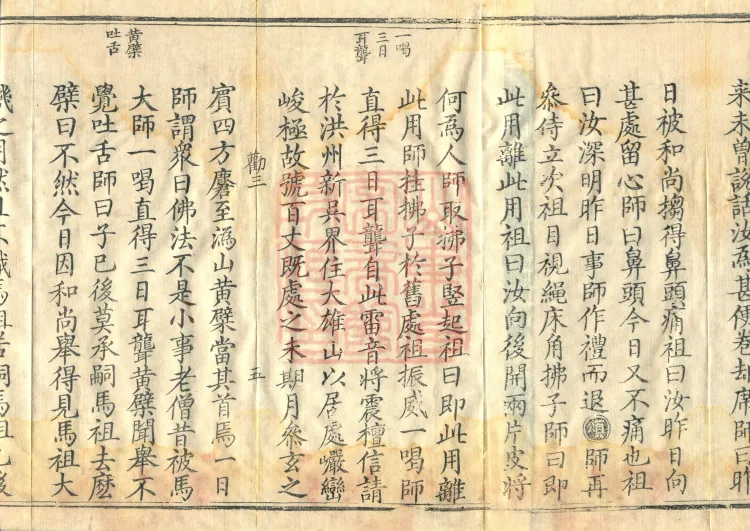 来未曽說話汝為甚便卷却席師曰昨
日被和尚搊得鼻頭痛祖曰汝昨日向
甚處留心師曰鼻頭今日又不痛也祖
曰汝深明昨日事師作禮而退 師再
叅侍立次祖目視繩床角拂子師曰即
此用離此用祖曰汝向後開兩片皮將
何為人師取拂子竪起祖曰即此用離
此用師挂拂子於舊處祖振威一喝師
直得三日耳聾自此雷音將震檀信請
於洪州新吳界住大雄山以居處巖巒
峻極故號百丈既處之未期月叅玄之
一喝
三日
耳聾
勸三
五
賓四方麏至潙山黃檗當其首焉一日
師謂衆曰佛法不是小事老僧昔被馬
大師一喝直得三日耳聾黃檗聞舉不
覺吐舌師曰子已後莫承嗣馬祖去麽
檗曰不然今日因和尚舉得見馬祖大
機之用然且不識馬祖若嗣馬祖已後
黄檗
吐舌